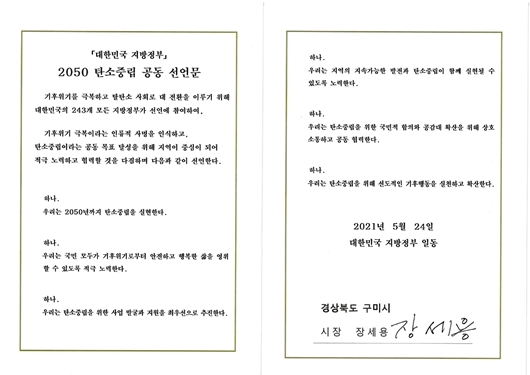 「대한민국 지방정부」
2050 탄소중립 공동 선언문
기후위기를 극복하고 탈탄소 사회로 대 전환을 이루기 위해
대한민국의 243개 모든 지방정부가 선언에 참여하여,
기후위기 극복이라는 인류적 사명을 인식하고,
탄소중립이라는 공동 목표 달성을 위해 지역이 중심이 되어
적극 노력하고 협력할 것을 다짐하며 다음과 같이 선언한다.
하나.
우리는 2050년까지 탄소중립을 실현한다.
하나.
우리는 국민 모두가 기후위기로부터 안전하고 행복한 삶을 영위
할 수 있도록 적극 노력한다.
하나.
우리는 탄소중립을 위한 사업 발굴과 지원을 최우선으로 추진한다.
하나.
우리는 지역의 지속가능한 발전과 탄소중립이 함께 실현될 수
있도록 노력한다.
하나.
우리는 탄소중립을 위한 국민적 합의와 공감대 확산을 위해 상호
소통하고 공동 협력한다.
하나.
우리는 탄소중립을 위해 선도적인 기후행동을 실천하고 확산한다.
2021년 5월 24일
대한민국 지방정부 일동
경상북도 구미시
시장 장세용 장세용